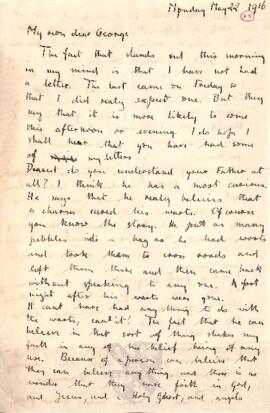 Monday May 22 1916
My own dear George
The fact that stands out this morning
in my mind is that I have not had
a letter. The last came on Friday so
that I did really expect one. But they
say that it is more likely to come
this afternoon or evening. I do hope I
shall hear that you have had some
of my letters
Dearest do you understand your Father at
all? I think he has a most curious.
He says that he really believes that
a charm cured his warts. Of course
you know the story. He put as many
pebbles into a bag as he had warts
and took them to cross roads and
left them there and then came back
without speaking to any one. A fort
night after his warts were gone.
It cant have had any thing to do with
the warts, can it? The fact that he can
believe in that sort of thing shakes my
faith in any of his belief being of any
use. Because if a person can believe that
they can believe any thing, and there is no
wonder that they have faith in God,
and Jesus, and Holy Ghost, and angels